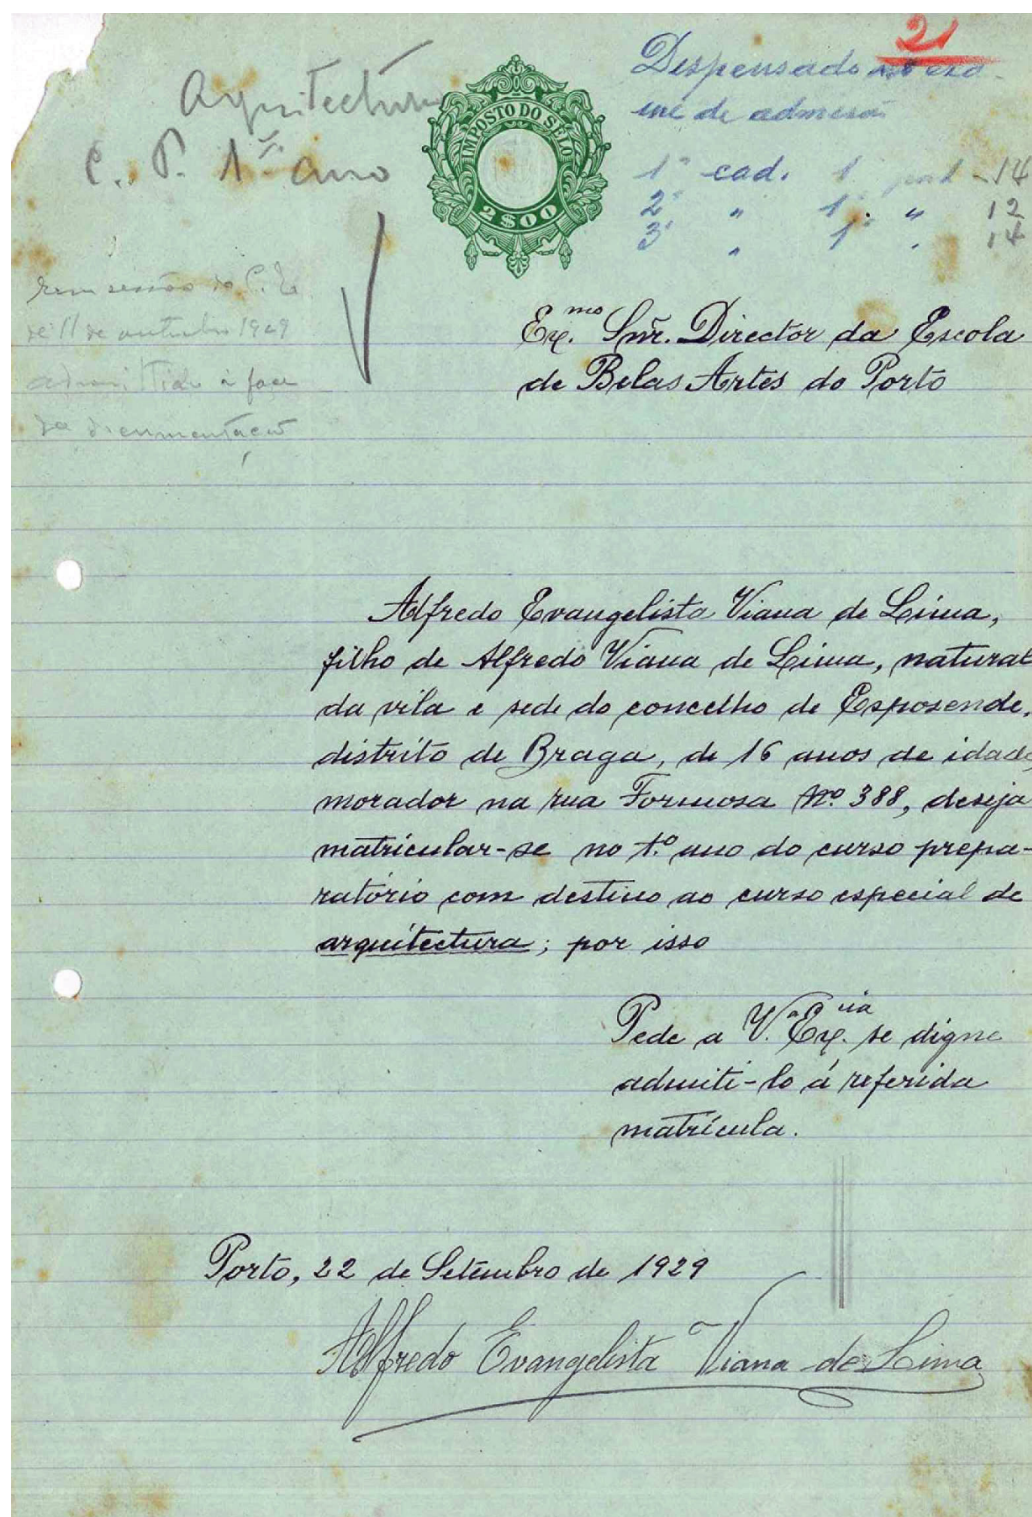 21
Arquitectura
C. P. 1º ano
IMPOSTO DO SELO
2$00
Despensado do exa-
me de admissão
1ª cad. 1 - 14
2ª " 1 " 12
3ª " 1 " 14
sessão do C. E.
de 11 de outubro 1929
admittido à face
da documentação
Ex.mo Snr. Director da Escola
de Belas Artes do Porto
Alfredo Evangelista Viana de Lima,
filho de Alfredo Viana de Lima, natural
da vila e sede do concelho de Esposende,
distrito de Braga, de 16 anos de idade
morador na rua Formosa Nº 388, deseja
matricular-se no 1.º ano do curso prepa-
ratório com destino ao curso especial de
arquitectura; por isso
Pede a V.ª Ex.cia se digne
admiti-lo á referida
matrícula.
Porto, 22 de Setembro de 1929
Alfredo Evangelista Viana de Lima